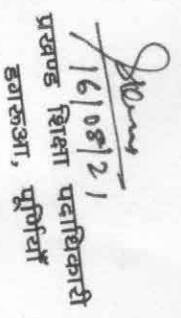 16/08/21
प्रखण्ड शिक्षा पदाधिकारी
डगरूआ, पूर्णियाँ